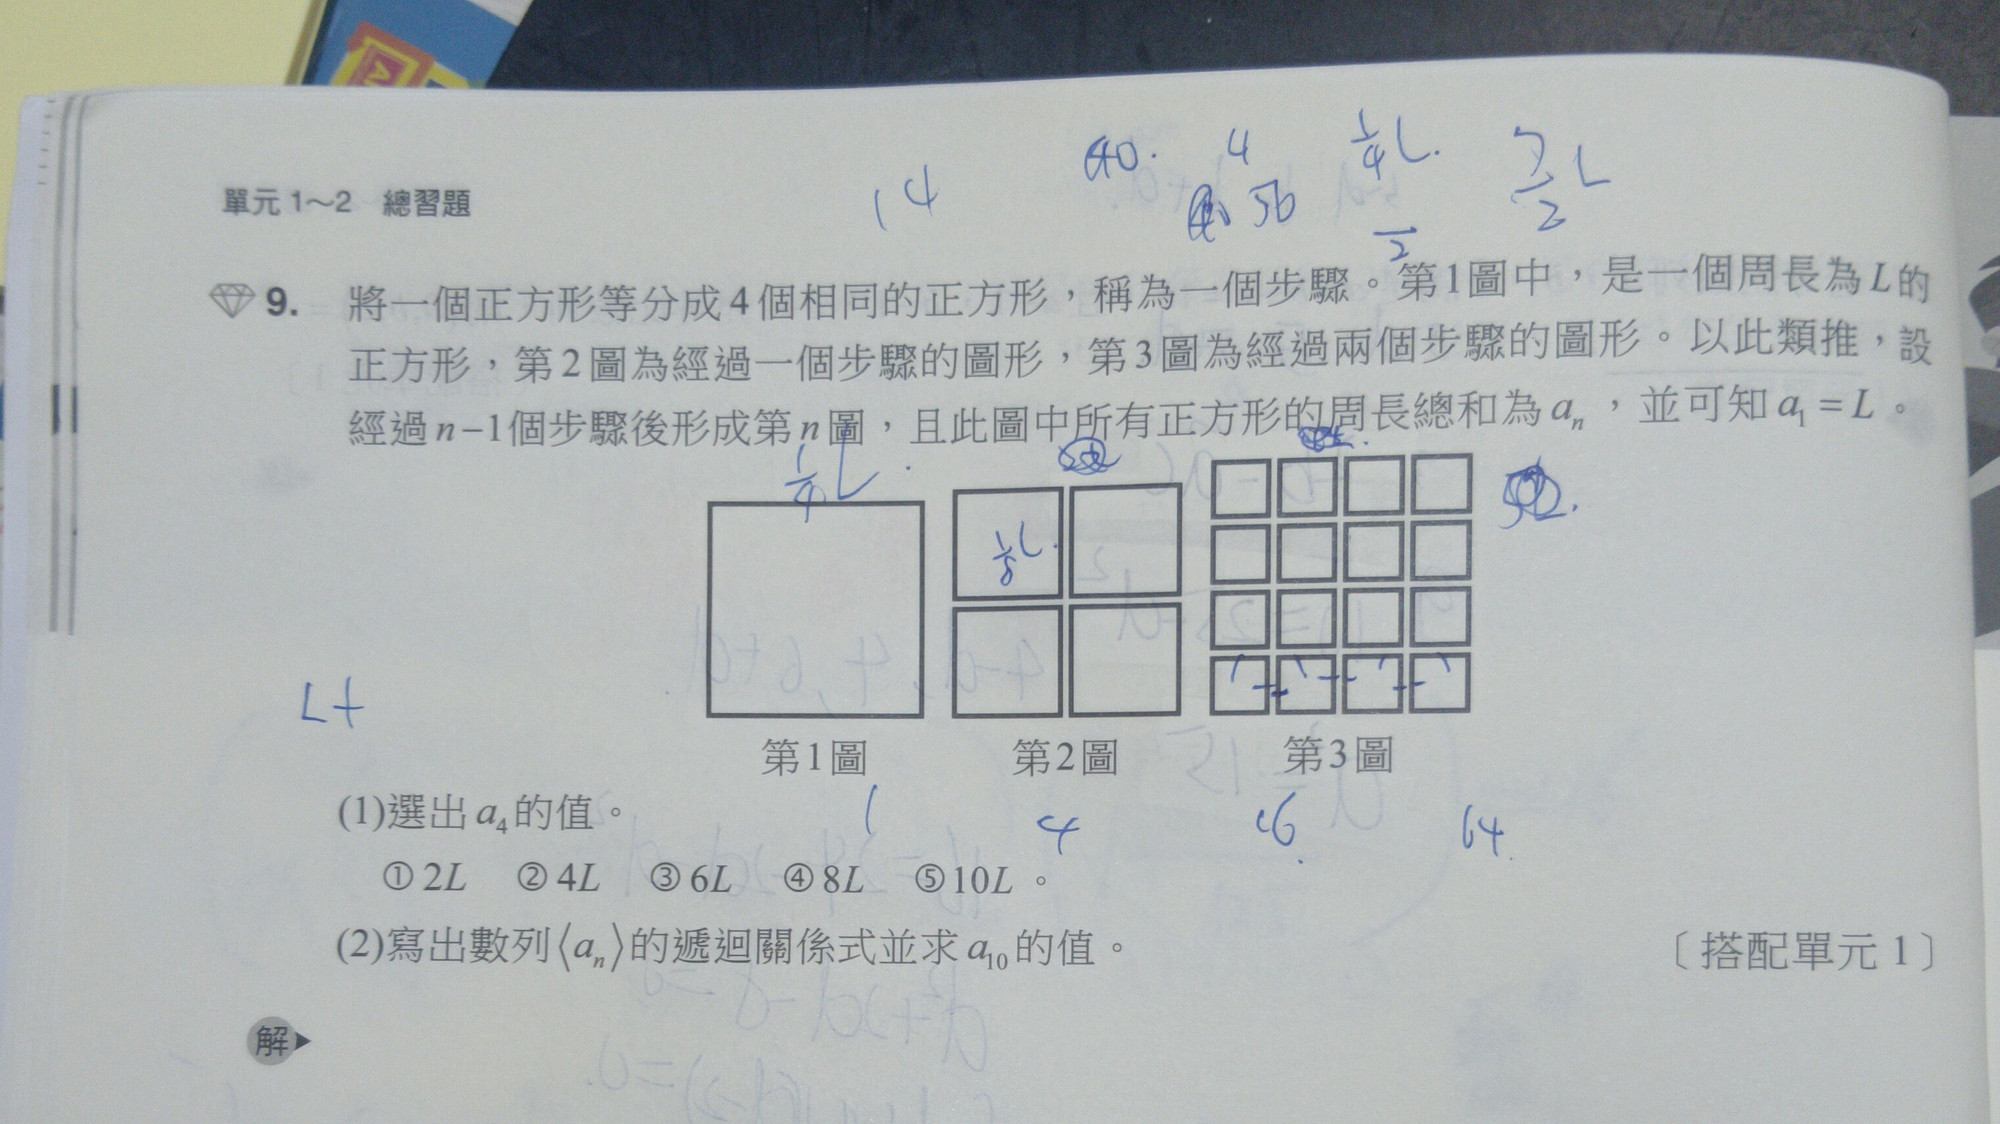 14
40.
4
56
1/4 L.
2
7/2 L
單元 1～2 總習題
9. 將一個正方形等分成4個相同的正方形，稱為一個步驟。第1圖中，是一個周長為L的
正方形，第2圖為經過一個步驟的圖形，第3圖為經過兩個步驟的圖形。以此類推，設
經過n−1個步驟後形成第n圖，且此圖中所有正方形的周長總和為aₙ，並可知a₁=L。
1/4 L
1/8 L.
L+
第1圖 第2圖 第3圖
1 4 16. 64.
(1)選出a₄的值。
①2L ②4L ③6L ④8L ⑤10L。
(2)寫出數列⟨aₙ⟩的遞迴關係式並求a₁₀的值。 〔搭配單元1〕
解